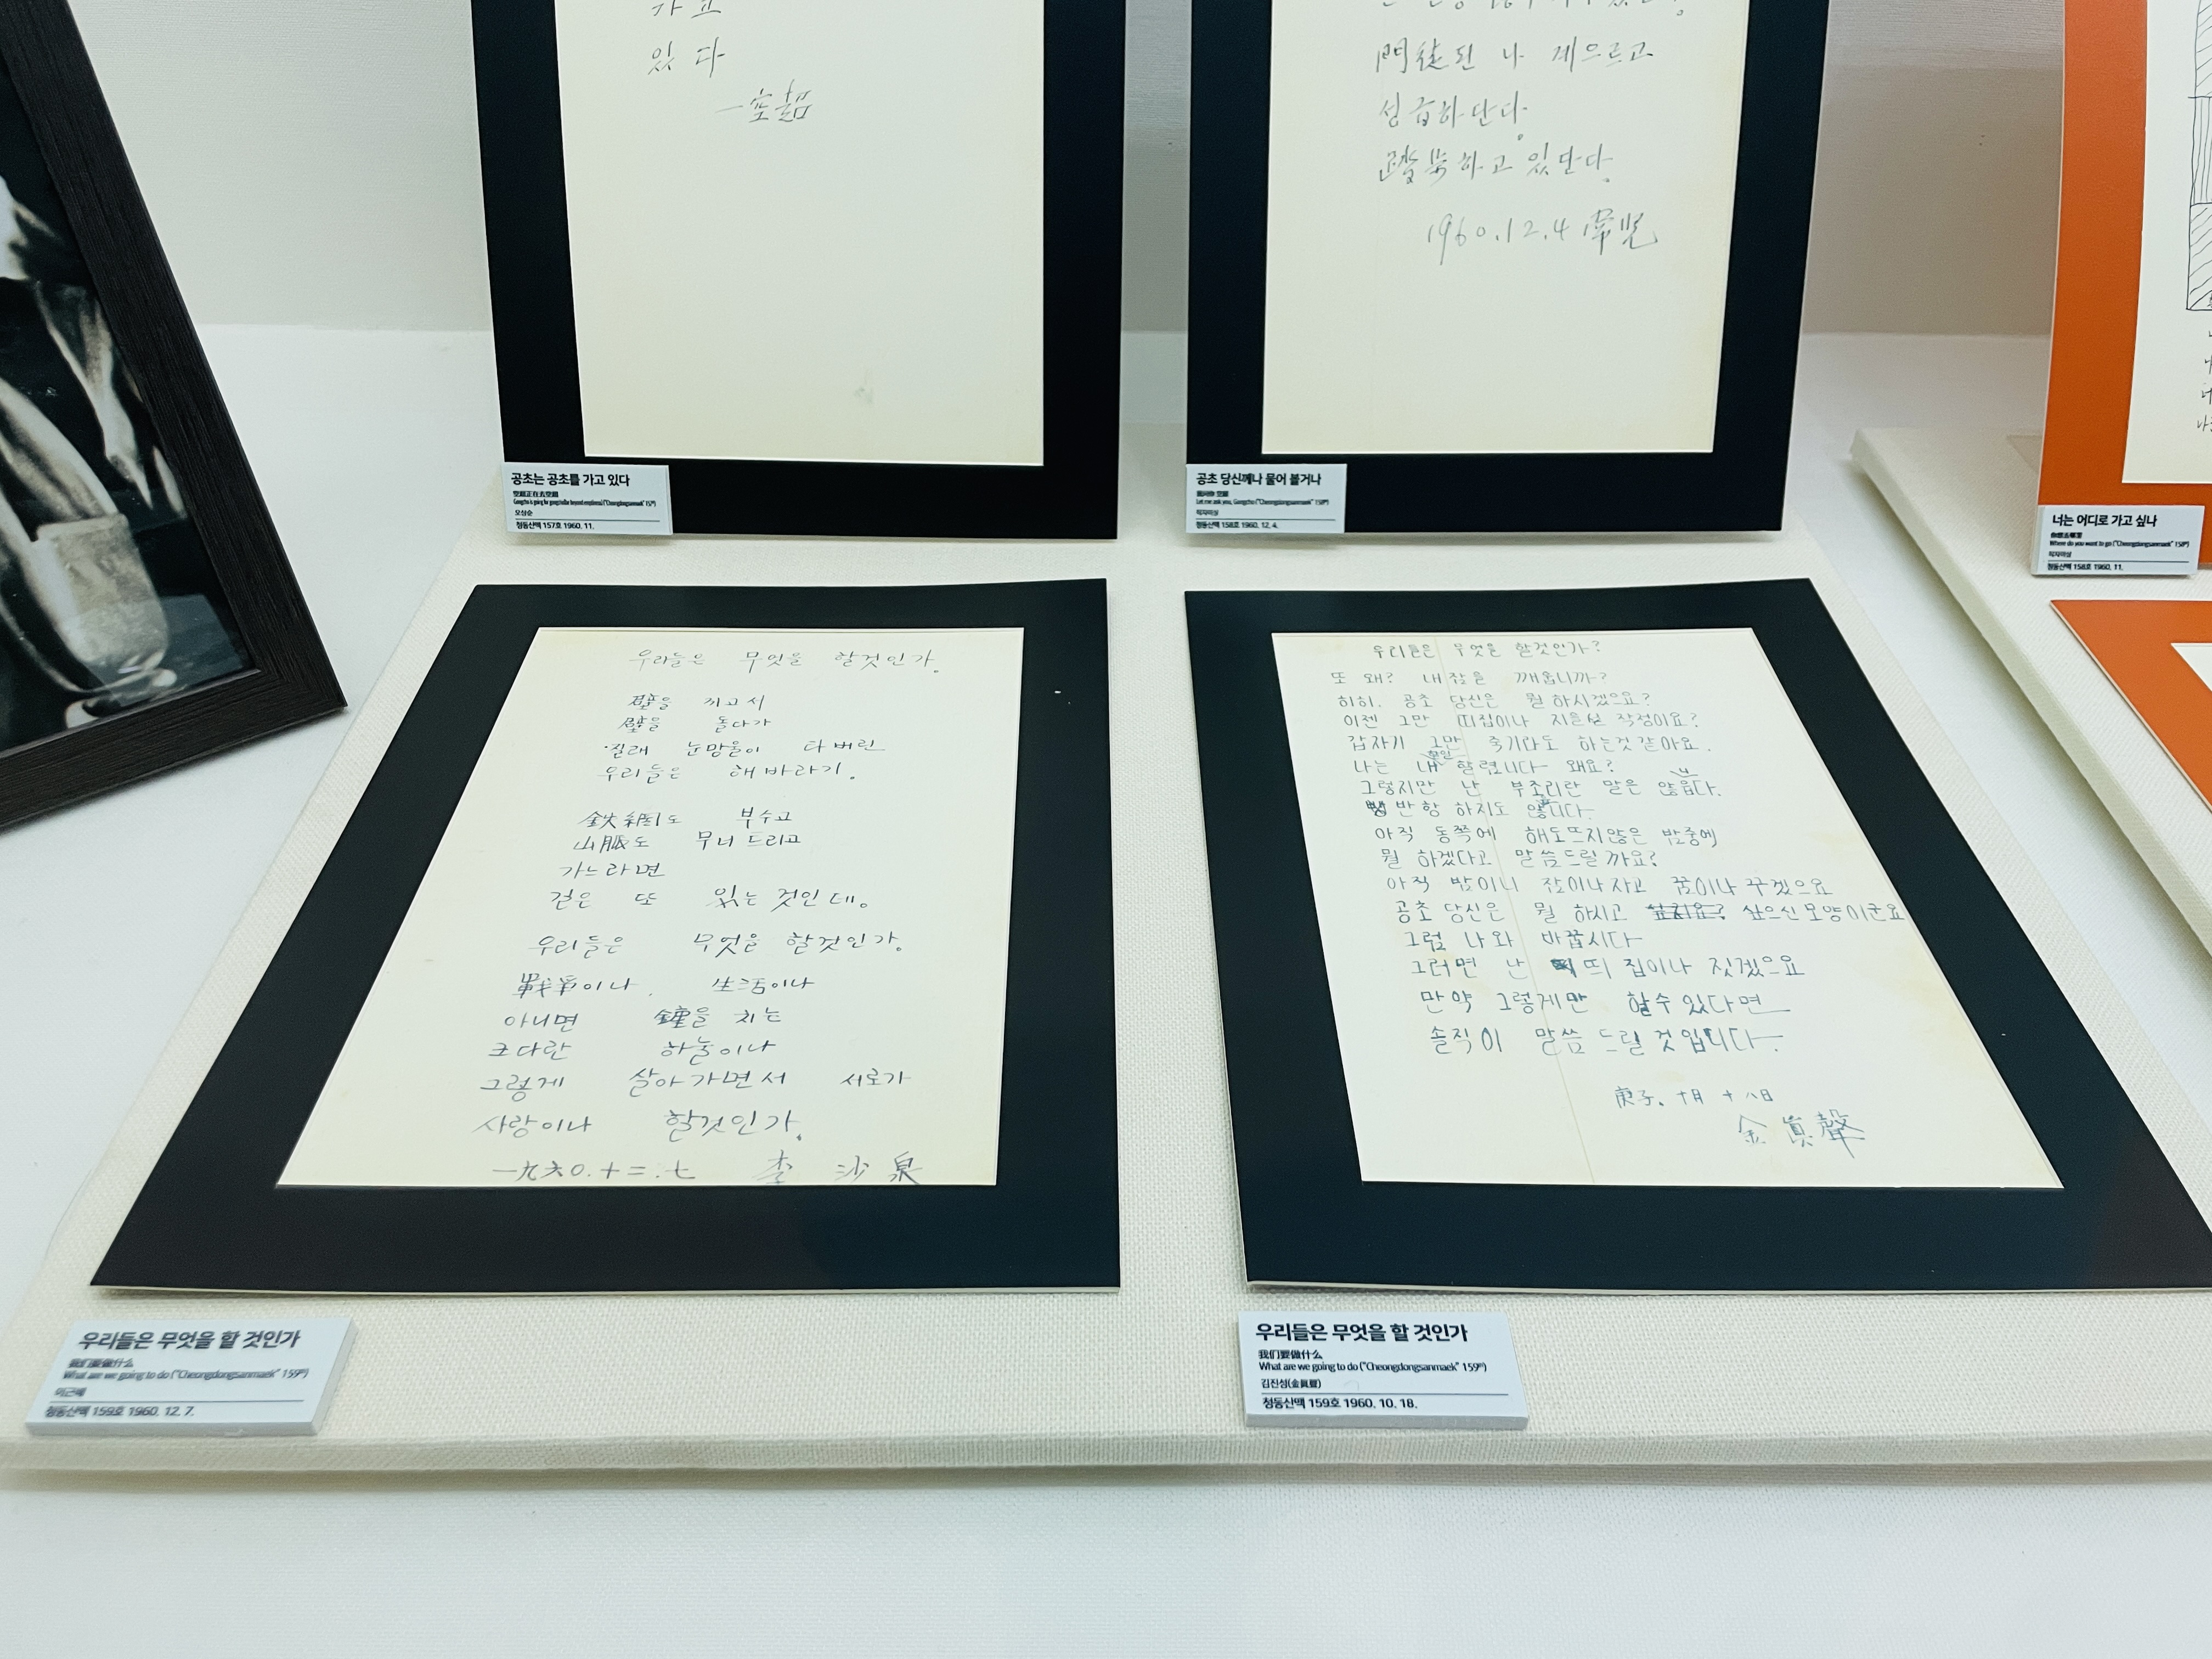 가고
있다
一空超
門徒된 나 게으르고
성급하단다.
踏步하고 있단다.
1960.12.4
공초는 공초를 가고 있다
空超正在去空超
오상순
청동산맥 157호 1960. 11.
공초 당신께나 물어 볼거나
Let me ask you, Gongcho ("Cheongdongsanmaek" 158th)
작자미상
청동산맥 158호 1960. 12. 4.
너는 어디로 가고 싶나
Where do you want to go ("Cheongdongsanmaek" 158th)
작자미상
청동산맥 158호 1960. 11.
우리들은 무엇을 할것인가.
壁을 끼고서
壁을 돌다가
질래 눈망울이 타버린
우리들은 해바라기.
鉄網도 부수고
山脈도 무너드리고
가느라면
길은 또 있는 것인데.
우리들은 무엇을 할것인가.
戰爭이나. 生活이나
아니면 鐘을 치는
크다란 하늘이나
그렇게 살아가면서 서로가
사랑이나 할것인가.
一九六0.十二.七 李 沙泉
우리들은 무엇을 할것인가?
또 왜? 내 잠을 깨웁니까?
히히. 공초 당신은 뭘 하시겠으요?
이젠 그만 띠집이나 지을실 작정이요?
갑자기 그만 죽기라도 하는것 같아요.
나는 내일 할렵니다 왜요?
그렇지만 난 부조리란 말은 않습니다.
반항 하지도 않습니다.
아직 동쪽에 해도뜨지않은 밤중에
뭘 하겠다고 말씀드릴까요?
아직 밤이니 잠이나자고 꿈이나 꾸겠으요
공초 당신은 뭘 하시고 싶으신모양이군요
그럼 나와 바꿉시다
그러면 난 띠 집이나 짓겠으요
만약 그렇게만 할수있다면
솔직이 말씀 드릴 것입니다.
庚子. 十月 十八日
金 眞 聲
우리들은 무엇을 할 것인가
我们要做什么
What are we going to do ("Cheongdongsanmaek" 159th)
청동산맥 159호 1960. 12. 7.
우리들은 무엇을 할 것인가
我们要做什么
What are we going to do ("Cheongdongsanmaek" 159th)
김진성(金眞聲)
청동산맥 159호 1960. 10. 18.